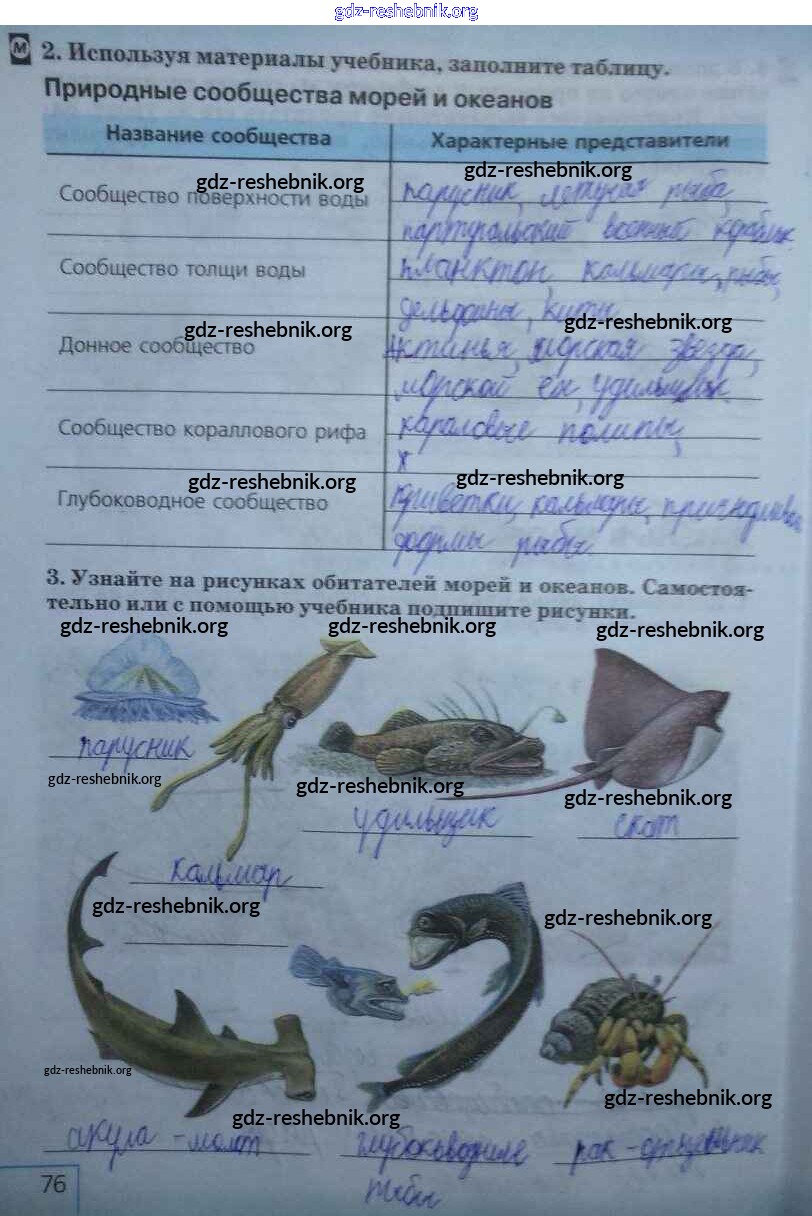 gdz-reshebnik.org
М 2. Используя материалы учебника, заполните таблицу.
Природные сообщества морей и океанов
Название сообщества Характерные представители
gdz-reshebnik.org gdz-reshebnik.org
Сообщество поверхности воды парусник, летучая рыба,
партугальский военный кораблик
Сообщество толщи воды планктон, кальмары, рыбы,
дельфины, киты
gdz-reshebnik.org gdz-reshebnik.org
Донное сообщество Актинья, морская звезда,
морской еж, удильщик
Сообщество кораллового рифа караловые полипы,
gdz-reshebnik.org gdz-reshebnik.org
Глубоководное сообщество креветки, кальмары,
формы рыбы
3. Узнайте на рисунках обитателей морей и океанов. Самостоя-
тельно или с помощью учебника подпишите рисунки.
gdz-reshebnik.org gdz-reshebnik.org gdz-reshebnik.org
парусник
gdz-reshebnik.org gdz-reshebnik.org gdz-reshebnik.org
удильщик скат
кальмар
gdz-reshebnik.org gdz-reshebnik.org
gdz-reshebnik.org gdz-reshebnik.org
gdz-reshebnik.org
акула - молот глубоководные рак - отшельник
рыбы
76